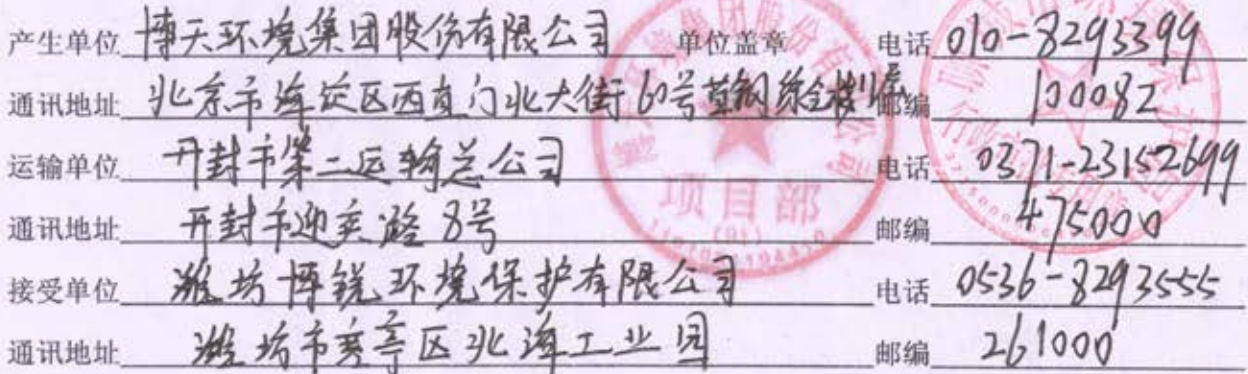 产生单位 博天环境集团股份有限公司 单位盖章 电话 010-8293399
通讯地址 北京市海淀区西直门北大街60号首钢综合楼 邮编 100082
运输单位 开封市第二运输总公司 电话 0371-23152699
通讯地址 开封市迎宾路8号 邮编 475000
接受单位 潍坊博锐环境保护有限公司 电话 0536-8293555
通讯地址 潍坊市寒亭区北海工业园 邮编 261000
项目部
(01)